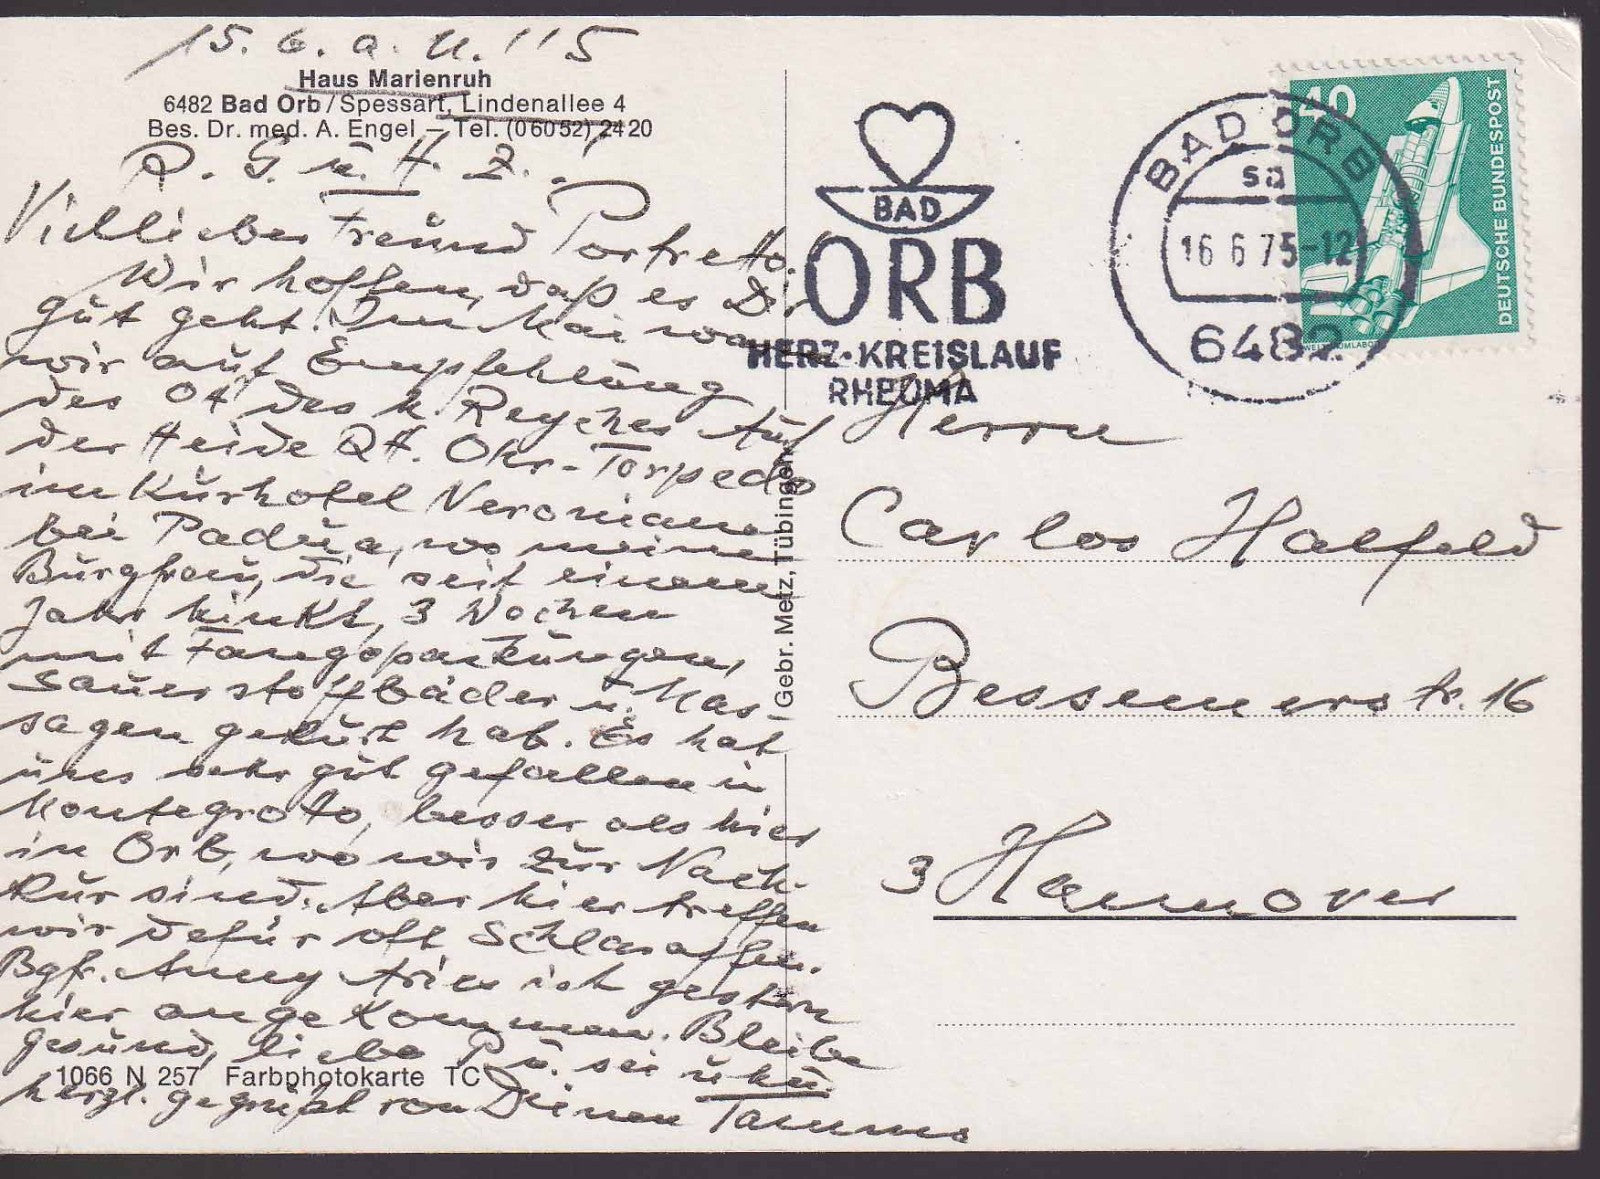 15. 6. a. U. 115
Haus Marienruh
6482 Bad Orb/Spessart, Lindenallee 4
Bes. Dr. med. A. Engel – Tel. (06052) 2420
R. G. u. H. Z.!
Viellieber Freund Portretto!
Wir hoffen, daß es Dir
gut geht. Im Mai waren
wir auf Empfehlung
des OÄ des h. Reyches Auf
der Heide Rt. Ohr-Torpedo
im Kurhotel Neroniane
bei Padua, wo meine
Burgfrau, die seit einem
Jahr hinkt, 3 Wochen
mit Fangopackungen,
Sauerstoffbäder u. Mas-
sagen gekurt hab. Es hat
uns sehr gut gefallen in
Montegrotto, besser als hier
in Orb, wo wir zur Nach-
kur sind. Aber hier treffen
wir dafür oft Schlaraffen.
Bgfr. Anny ich gestern
hier angekommen. Bleibe
gesund, lieber P. u. sei
herzl. gegrüßt von Deinen Tammo
1066 N 257 Farbphotokarte TC
Gebr. Metz, Tübingen
BAD
ORB
HERZ·KREISLAUF
RHEUMA
BAD ORB
sa
16.6.75-12
6482
40
DEUTSCHE BUNDESPOST
Herrn
Carlos Halfeld
Bessemerstr. 16
3 Hannover